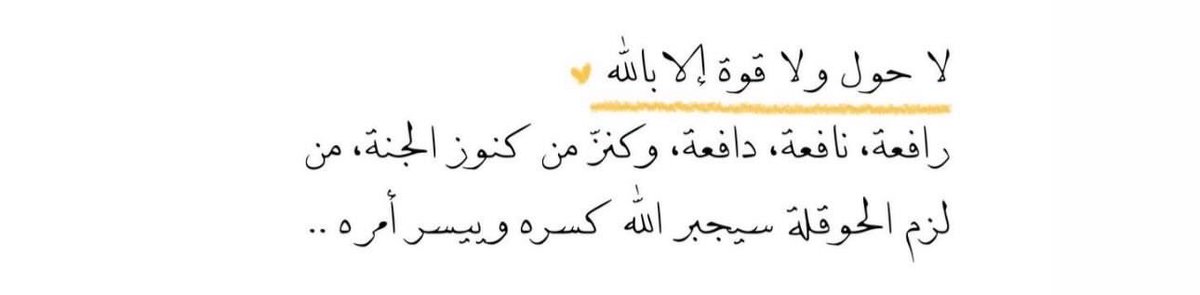 لا حول ولا قوة إلا بالله
رافعة، نافعة، دافعة، وكنزّ من كنوز الجنة، من
لزم الحوقلة سيجبر الله كسره وييسر أمره ..